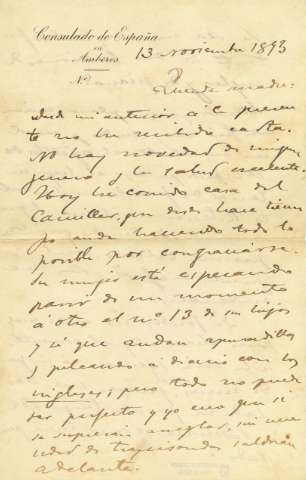 Consulado de España
en
Amberes
13 noviembre 1893
Nº
Querida madre:
desde mi anterior á la presen
te no he recibido carta.
No hay novedad de ningun
genero y la salud excelente.
Hoy he comido casa del
Canciller, que desde hace tiem
po anda haciendo todo lo
posible por congraciarse.
Su mujer está esperando
parir de un momento
á otro el nº 13 de sus hijos
y sí que andan apuradillos
y peleando á diario con los
ingleses; pero todo no puede
ser perfecto y yo creo que si
se supieran arreglar, sin nece
sidad de trapisondas saldrían
adelante.